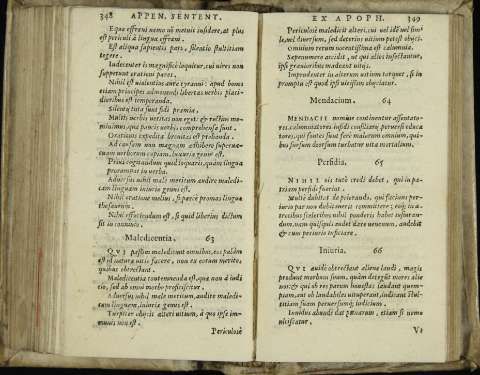 348 APPEN. SENTENT.
Equo effreni nemo nō metuit insidere, at plus
est periculi à lingua effreni.
Est aliqua sapientis pars, silentio stultitiam
tegere.
Indecenter is magnificè loquitur, cui vires non
suppetunt orationi pares.
Nihil est violentius aure tyranni: apud bonos
etiam principes admonendi libertas verbis placi-
dioribus est temperanda.
Silentij tuta sunt fidi præmia.
Multis verbis veritas non eget: & rectius me-
minimus, quæ paucis verbis comprehensa sunt.
Orationis expedita brevitas est probanda.
Ad causam non magnam adhibere supervac-
uam verborum copiam, luxuriæ genus est.
Prius cogitandum quid loquaris, quàm lingua
prorumpat in verba.
Adversus nihil malè meritum audire maledi-
cam linguam iniuriæ genus est.
Nihil oratione melius, si parcè promas linguæ
thesaurum.
Nihil effutiendum est, si quid liberius dictum
sit in conviviis.
Maledicentia. 63
QVI passim maledicunt omnibus, eos palàm
est id natura vitio facere, non ex eorum merito,
quibus obtrectant.
Maledicentia contemnenda est, quæ non à iudi-
cio, sed ab animi morbo proficiscitur.
Adversus nihil malè meritum, audire maledi-
cam linguam, iniuriæ genus est.
Turpiter obijcis alteri vitium, à quo ipse im-
munis non est.
Periculosè
EX APOPH. 349
Periculosè maledicit alteri, cui vel idē vel simi-
le, vel diversum, sed deterius vitium potest obijci.
Omnium rerum nocentissima est calumnia.
Sæpenumero accidit, ut qui alios insectantur,
ipsi gravioribus madeant vitijs.
Imprudenter in alterum vitium torquet, si in
promptu est quod ipsi vicissim obijciatur.
Mendacium. 64
MENDACII nomine continentur assentato-
res, calumniatores insidi consiliarij perversi educa-
tores, qui fontes sunt ferè malorum omnium, qui-
bus sursum deorsum turbatur vita mortalium.
Perfidia. 65
NIHIL vis tutò credi debet, qui in pa-
triam perfidi fuerint.
Multi dubitāt de peierando, qui facinus pe-
iurio par non dubitārint committere; eoq́; in a-
trocibus sceleribus nihil ponderis habet iusiuran-
dum, nam quisquis audet dare venenum, audebit
& cum periurio inficiare.
Iniuria. 66
QVI avidè obtrectant aliena laudi, magis
produnt morbum suum, quàm detegūt mores alie-
nos: & qui ob res parum honestas laudant quem-
piam, aut ob laudabiles vituperant, indicant stul-
titiam suam perversumq́; iudicium.
Invidus abundè dat pœnarum, etiam si nemo
ulciscatur.
Vt